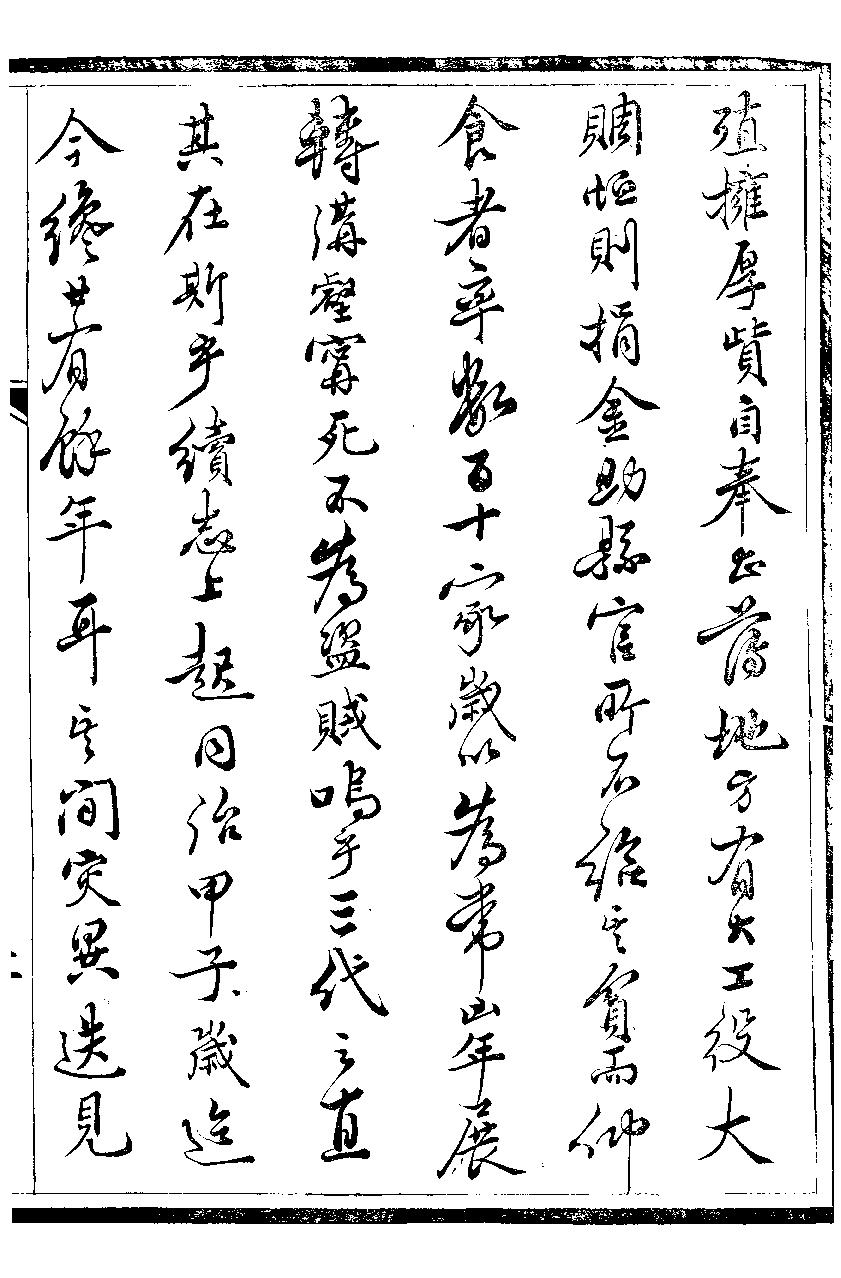 殖擁厚貲自奉甚薄地方有大工役大
賙恤則捐金助縣官所不給其貧而仰
食者率數百十家歲以為常凶年展
轉溝壑寗死不為盜賊嗚乎三代之直
其在斯乎續志上起同治甲子歲迄
今纔廿有餘年耳其間災異迭見